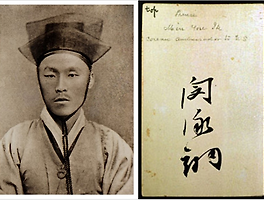 top
Prince
Min Yon Ik
Corean Ambassador to U.S.
閔泳翊